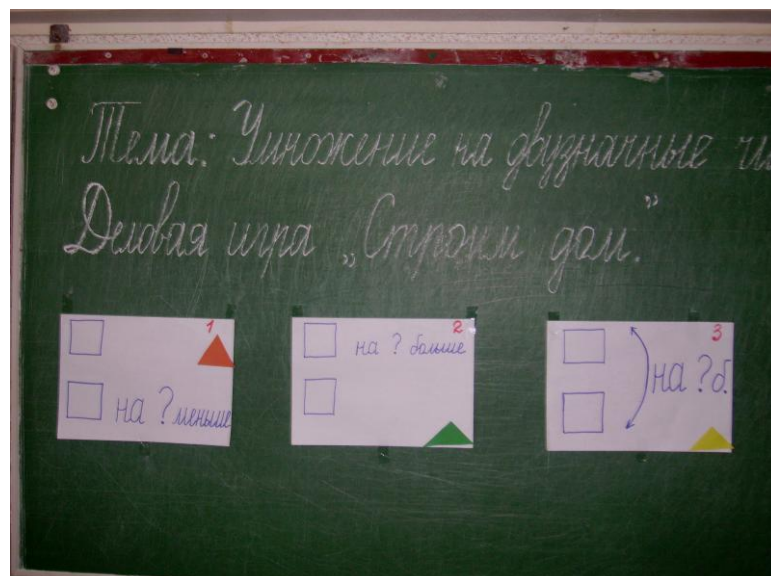 Тема: Умножение на двузначные чи
Деловая игра „Строим дом."
1
на ? меньше
2
на ? больше
3
на ? б.